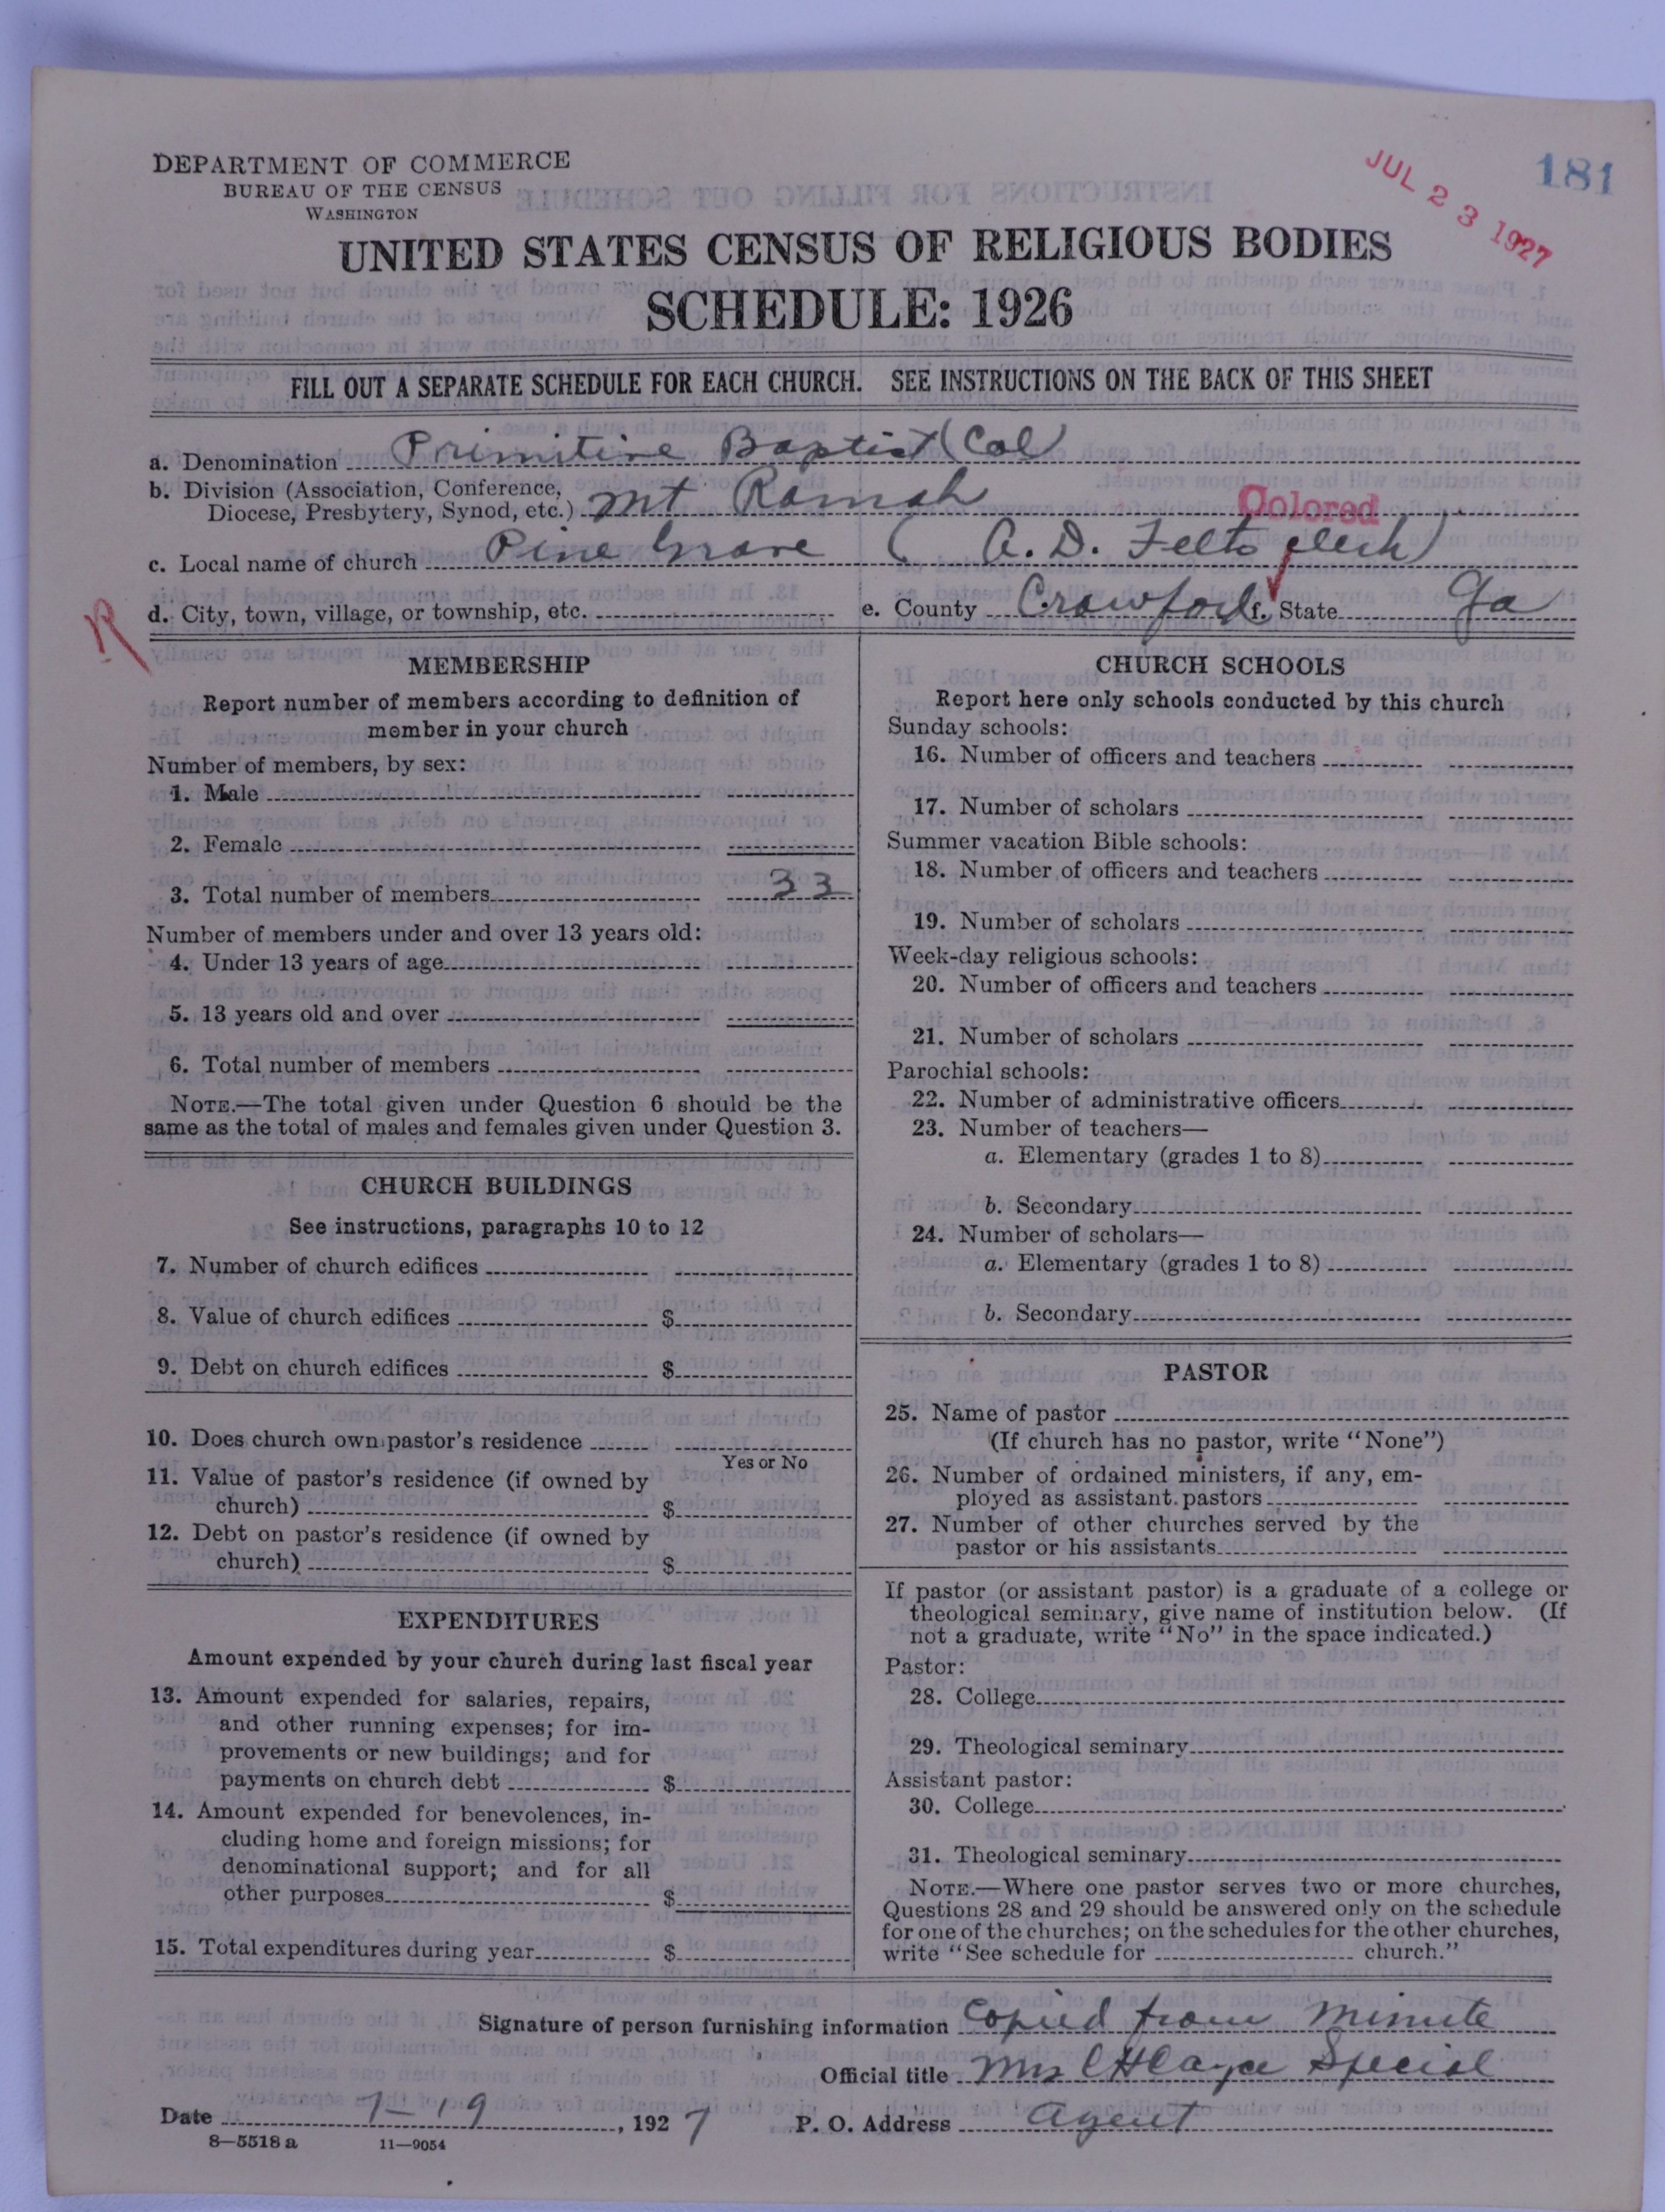 DEPARTMENT OF COMMERCE
BUREAU OF THE CENSUS
WASHINGTON
JUL 23 1927
181
UNITED STATES CENSUS OF RELIGIOUS BODIES
SCHEDULE: 1926
FILL OUT A SEPARATE SCHEDULE FOR EACH CHURCH. SEE INSTRUCTIONS ON THE BACK OF THIS SHEET
a. Denomination Primitive Baptist (Col)
b. Division (Association, Conference, Diocese, Presbytery, Synod, etc.) Mt Ramah
Colored
c. Local name of church Pine Grove (A. D. Felts clerk)
R
d. City, town, village, or township, etc. e. County Crawford f. State Ga
MEMBERSHIP
Report number of members according to definition of
member in your church
Number of members, by sex:
1. Male
2. Female
3. Total number of members 33
Number of members under and over 13 years old:
4. Under 13 years of age
5. 13 years old and over
6. Total number of members
NOTE.—The total given under Question 6 should be the
same as the total of males and females given under Question 3.
CHURCH BUILDINGS
See instructions, paragraphs 10 to 12
7. Number of church edifices
8. Value of church edifices $
9. Debt on church edifices $
10. Does church own pastor's residence
Yes or No
11. Value of pastor's residence (if owned by
church) $
12. Debt on pastor's residence (if owned by
church) $
EXPENDITURES
Amount expended by your church during last fiscal year
13. Amount expended for salaries, repairs,
and other running expenses; for im-
provements or new buildings; and for
payments on church debt $
14. Amount expended for benevolences, in-
cluding home and foreign missions; for
denominational support; and for all
other purposes $
15. Total expenditures during year $
CHURCH SCHOOLS
Report here only schools conducted by this church
Sunday schools:
16. Number of officers and teachers
17. Number of scholars
Summer vacation Bible schools:
18. Number of officers and teachers
19. Number of scholars
Week-day religious schools:
20. Number of officers and teachers
21. Number of scholars
Parochial schools:
22. Number of administrative officers
23. Number of teachers—
a. Elementary (grades 1 to 8)
b. Secondary
24. Number of scholars—
a. Elementary (grades 1 to 8)
b. Secondary
PASTOR
25. Name of pastor
(If church has no pastor, write "None")
26. Number of ordained ministers, if any, em-
ployed as assistant pastors
27. Number of other churches served by the
pastor or his assistants
If pastor (or assistant pastor) is a graduate of a college or
theological seminary, give name of institution below. (If
not a graduate, write "No" in the space indicated.)
Pastor:
28. College
29. Theological seminary
Assistant pastor:
30. College
31. Theological seminary
NOTE.—Where one pastor serves two or more churches,
Questions 28 and 29 should be answered only on the schedule
for one of the churches; on the schedules for the other churches,
write "See schedule for church."
Signature of person furnishing information Copied from Minute
Official title Mrs C H Special
Date 7-19, 1927 P. O. Address Agent
8—5518 a 11—9054